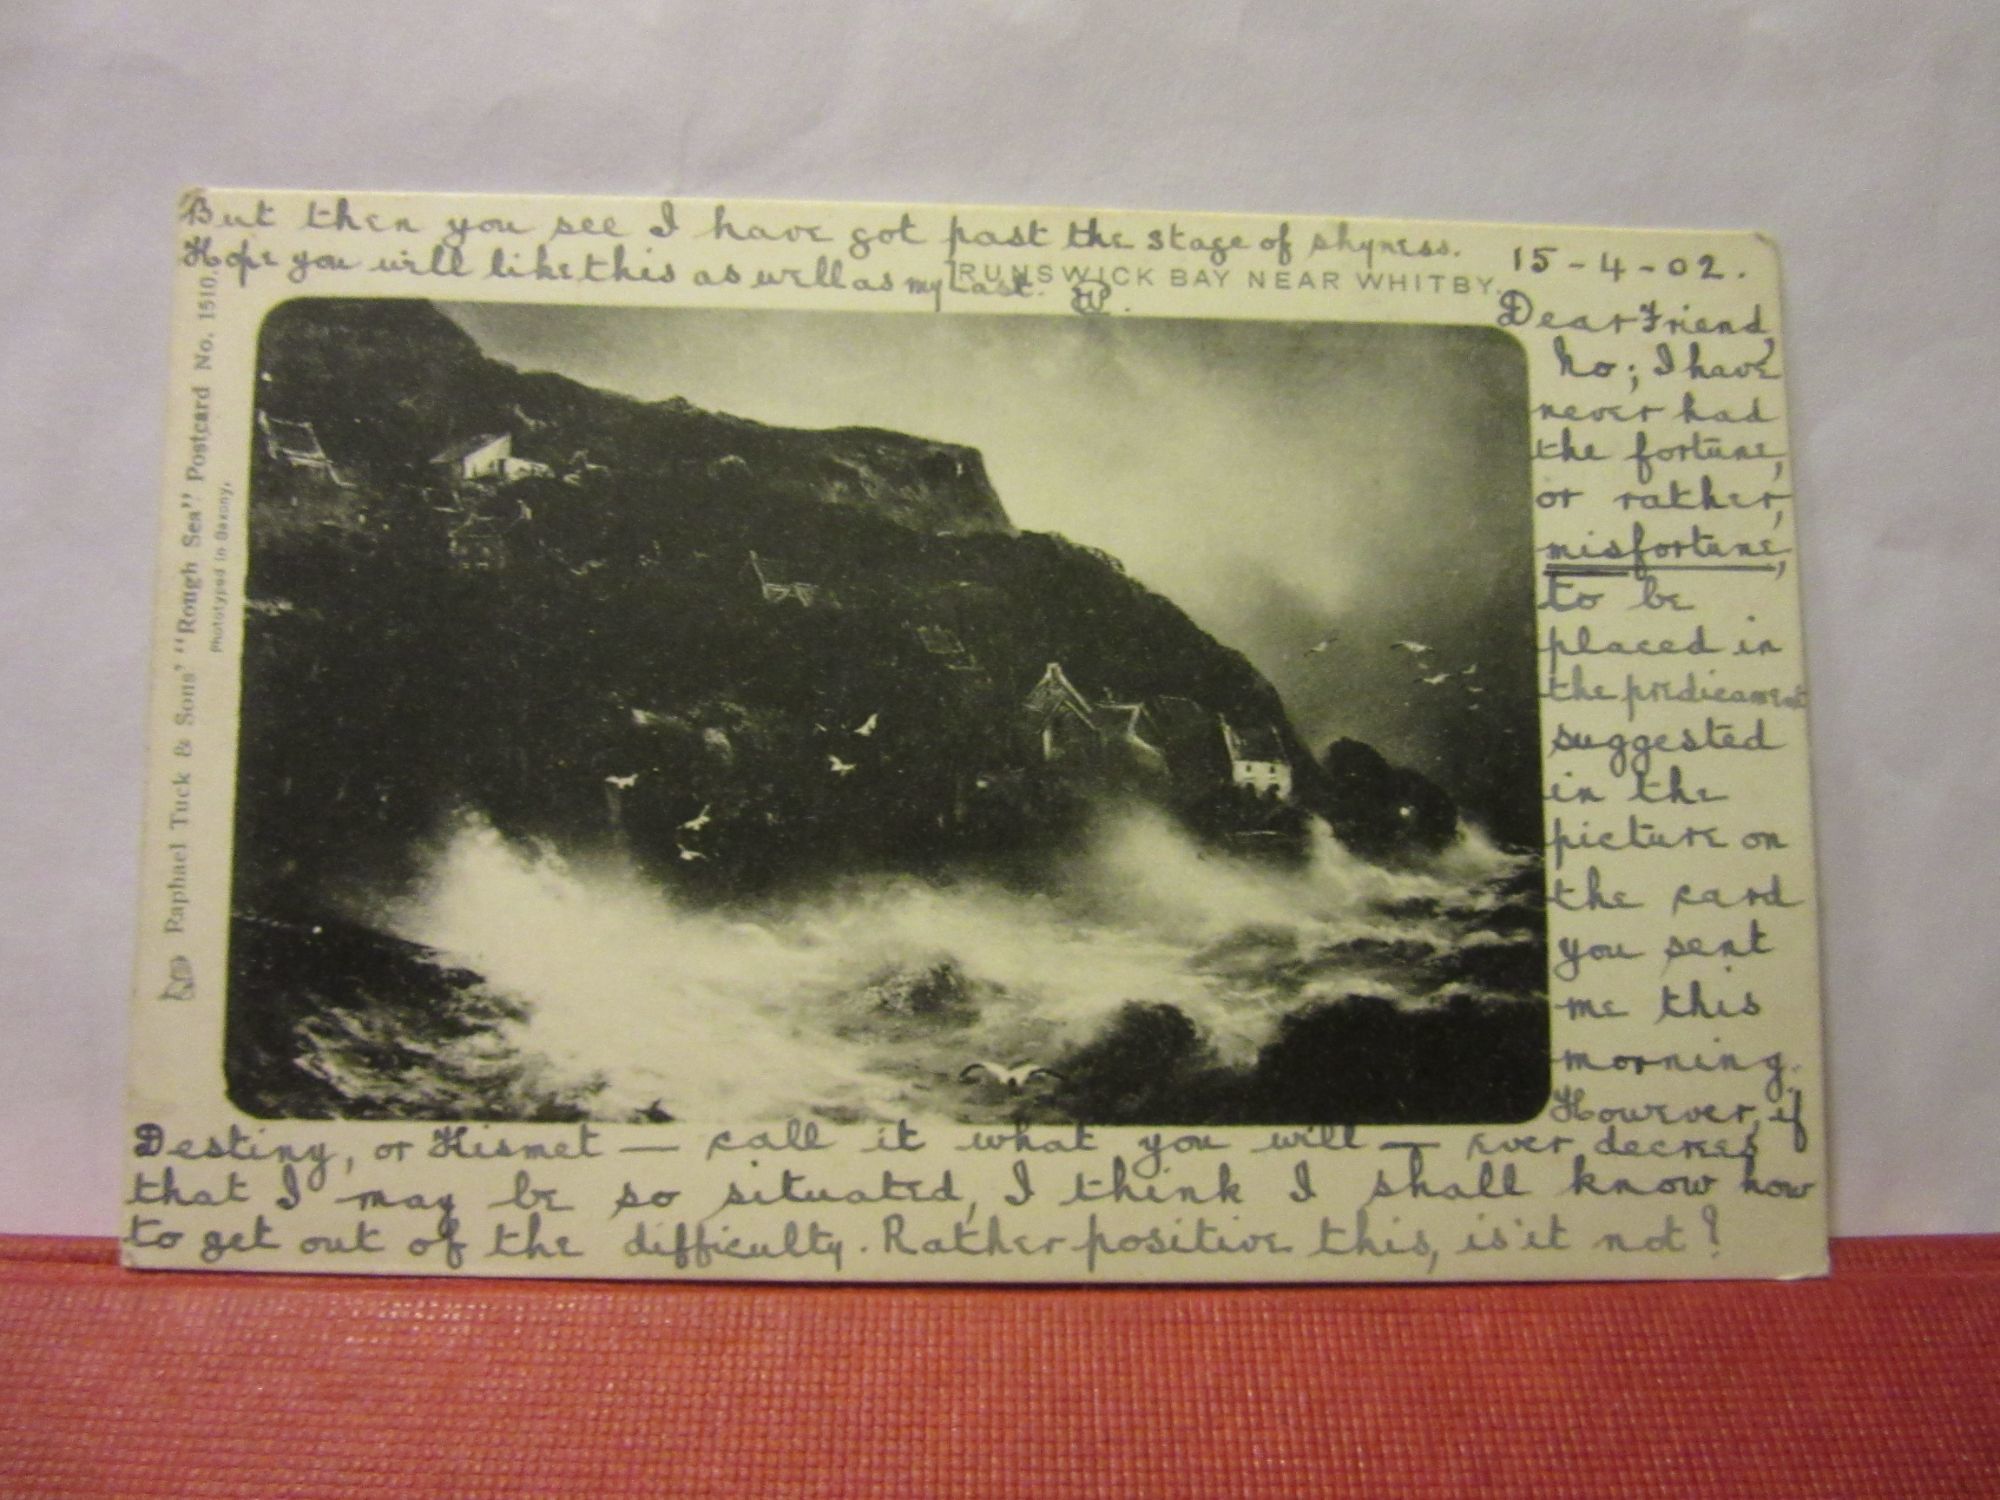 15-4-02.
Dear Friend,
No; I have
never had
the fortune,
or rather,
misfortune,
to be
placed in
the predicament
suggested
in the
picture on
the card
you sent
me this
morning.
However, if
Destiny, or Kismet — call it what you will — ever decrees
that I may be so situated, I think I shall know how
to get out of the difficulty. Rather positive this, is it not?
But then you see I have got past the stage of shyness.
Hope you will like this as well as my last.
RUNSWICK BAY NEAR WHITBY.
Raphael Tuck & Sons' "Rough Sea" Postcard No. 1510.
Phototyped in Saxony.